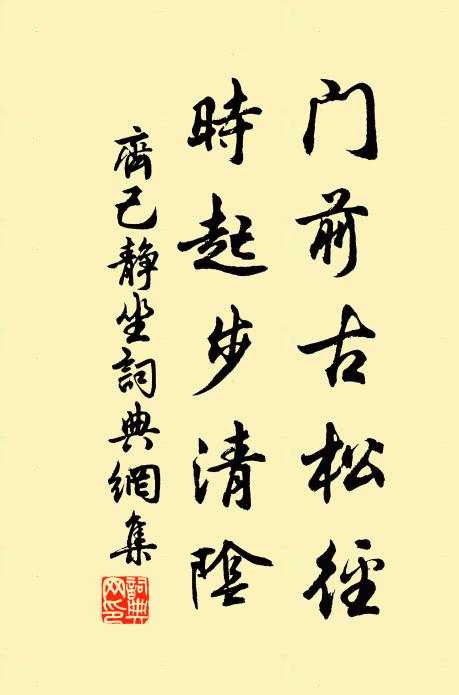 门前古松径
時起步清陰
齊己静坐詞典網集
詞典网印